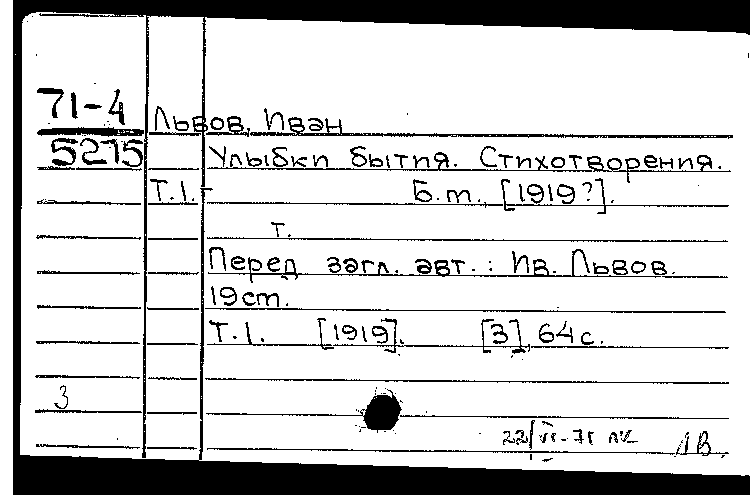 71-4
Львов, Иван
5275
Улыбки бытия. Стихотворения.
Т.1.- Б.т., [1919?].
т.
Перед загл. авт.: Ив. Львов.
19 см.
Т.1. [1919]. [3], 64 с.
3
22/VI-71 ЛВ.